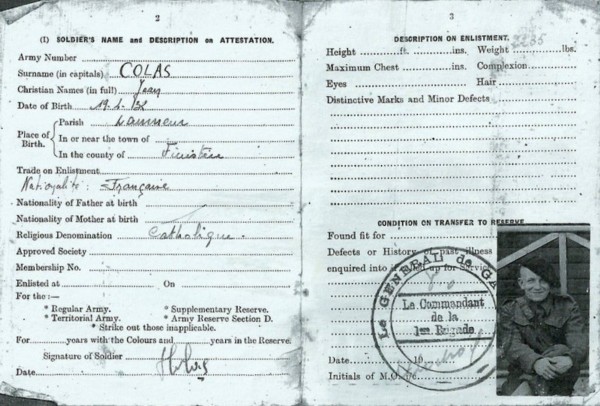 2
(I) SOLDIER'S NAME and DESCRIPTION on ATTESTATION.
Army Number
Surname (in capitals) COLAS
Christian Names (in full) Jean
Date of Birth
Place of Birth.
Parish Lanmeur
In or near the town of
In the county of Finistère
Trade on Enlistment
Nationalité: Française
Nationality of Father at birth
Nationality of Mother at birth
Religious Denomination Catholique.
Approved Society
Membership No.
Enlisted at On
For the :—
* Regular Army. * Supplementary Reserve.
* Territorial Army. * Army Reserve Section D.
* Strike out those inapplicable.
For years with the Colours and years in the Reserve.
Signature of Soldier
Date
3
DESCRIPTION ON ENLISTMENT.
Height ft. ins. Weight lbs.
Maximum Chest ins. Complexion
Eyes Hair
Distinctive Marks and Minor Defects
CONDITION ON TRANSFER TO RESERVE
Found fit for
Defects or History of past illness
enquired into if called up for Service
LE GENERAL de
Le Commandant
de la
1ère Brigade
Date 19
Initials of M.O. i/c